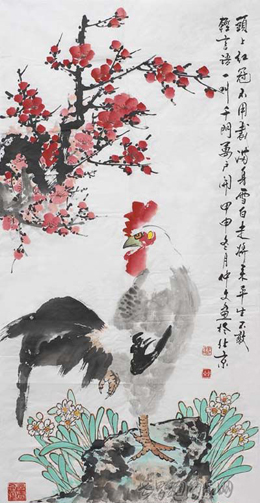 頭上紅冠不用裁滿身雪白走將來平生不敢
輕言語一叫千門萬户開甲申冬月仲文畫於北京